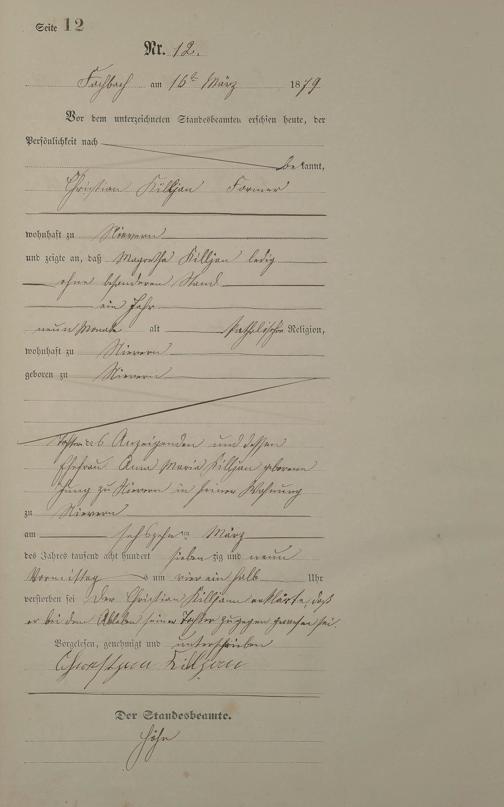 Seite 12
Nr. 12.
Fachbach am 16ten März 1879
Vor dem unterzeichneten Standesbeamten erschien heute, der
Persönlichkeit nach
bekannt,
Christian Killjan Former
wohnhaft zu Nievern
und zeigte an, daß Magretha Killjan ledig
ohne besonderen Stand
ein Jahr
neun Monate alt katholischer Religion,
wohnhaft zu Nievern
geboren zu Nievern
Tochter des Anzeigenden und dessen
Ehefrau Anna Maria Killjan geborene
Jung zu Nievern in seiner Wohnung
zu Nievern
am sechszehnten März
des Jahres tausend acht hundert siebenzig und neun
Vormittags um vier ein halb Uhr
verstorben sei Der Christian Killjann erklärte, daß
er bei dem Ableben seiner Tochter zugegen gewesen sei
Vorgelesen, genehmigt und unterschrieben
Christjan Killjan
Der Standesbeamte.
Höhn